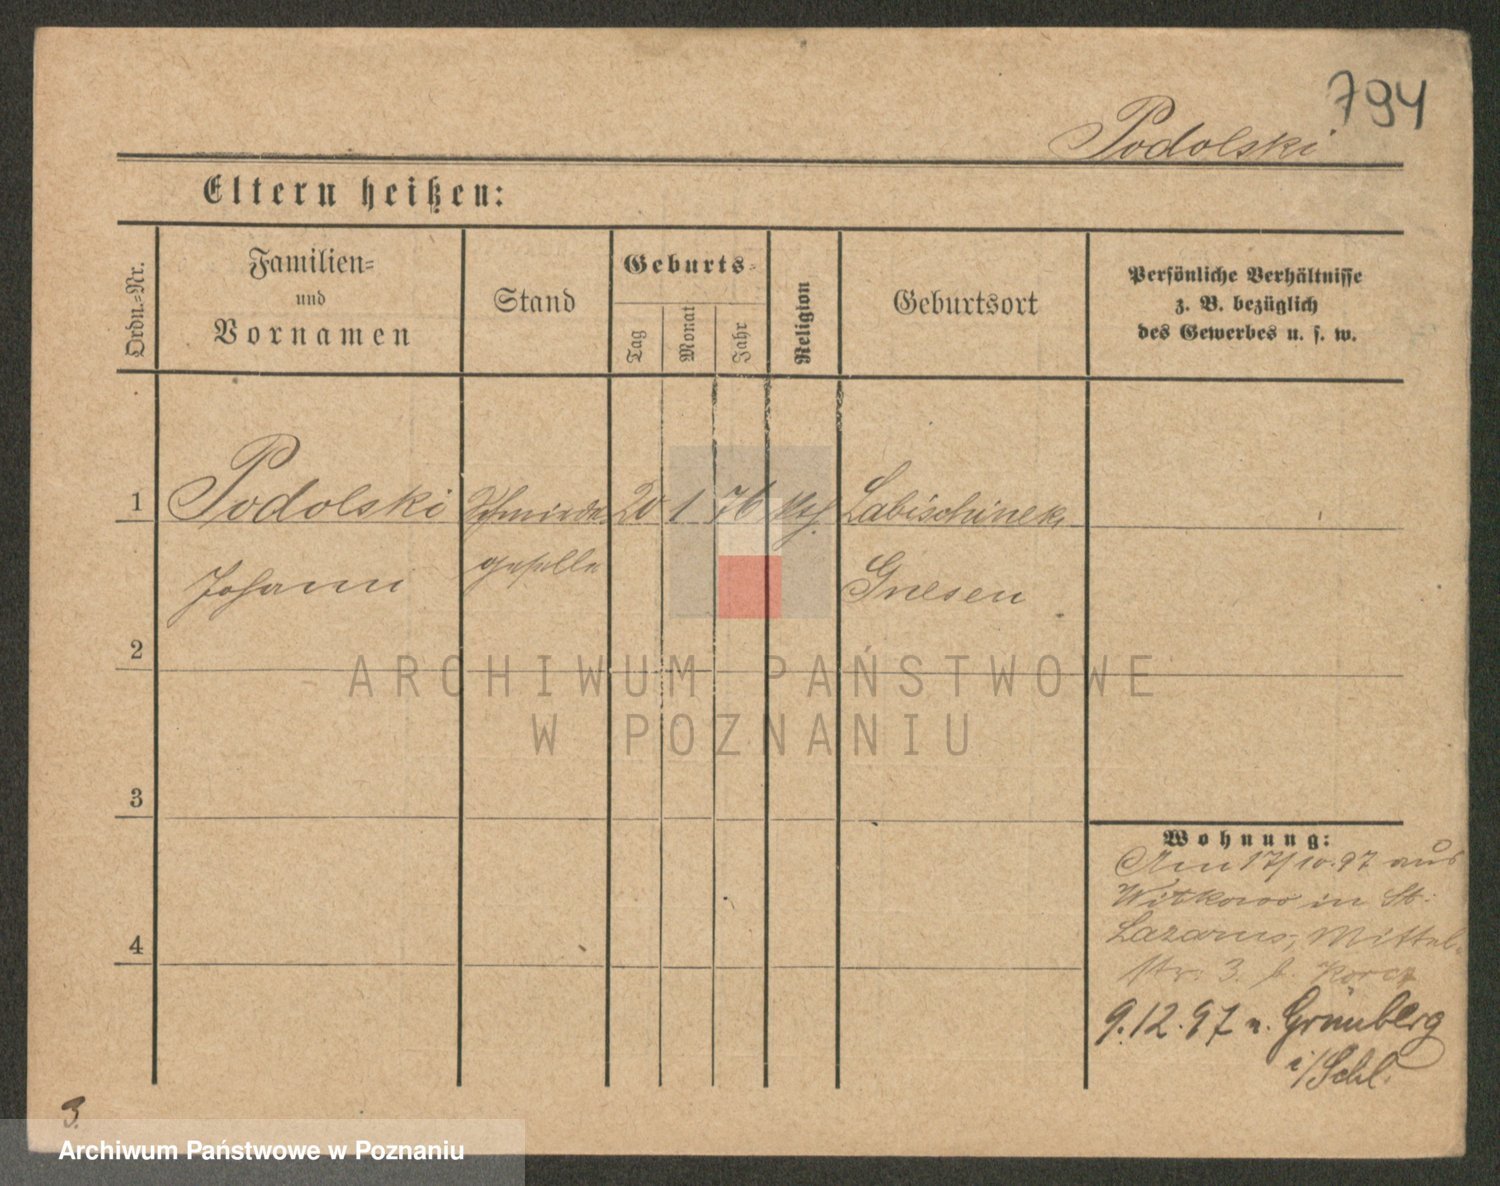 794
Podolski
Eltern heißen:
Ordn.-Nr.
Familien-
und
Vornamen
Stand
Geburts-
Tag
Monat
Jahr
Religion
Geburtsort
Persönliche Verhältnisse
z. B. bezüglich
des Gewerbes u. s. w.
1 Podolski Schmiede 20 1 76 kth Labischinek,
Johann geselle Gnesen
2
3
4
ARCHIWUM PAŃSTWOWE
W POZNANIU
Wohnung:
Am 17/10.97 aus
Witkowo in St.
Lazarus, Mittel-
str. 3. b. Korcz
9.12.97 n. Grünberg
i/Schl.
3.
Archiwum Państwowe w Poznaniu